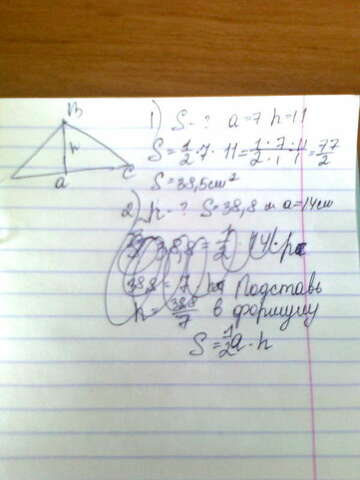 B
h
a
C
1) S-? a=7 h=11
S=1/2·7·11=1·7·11/2·1·1=77/2
S=38,5см²
2) h-? S=38,8 a=14см
38,8=1/2·14·h
38,8=7h Подставь
h=38,8/7 в формулу
S=1/2a·h